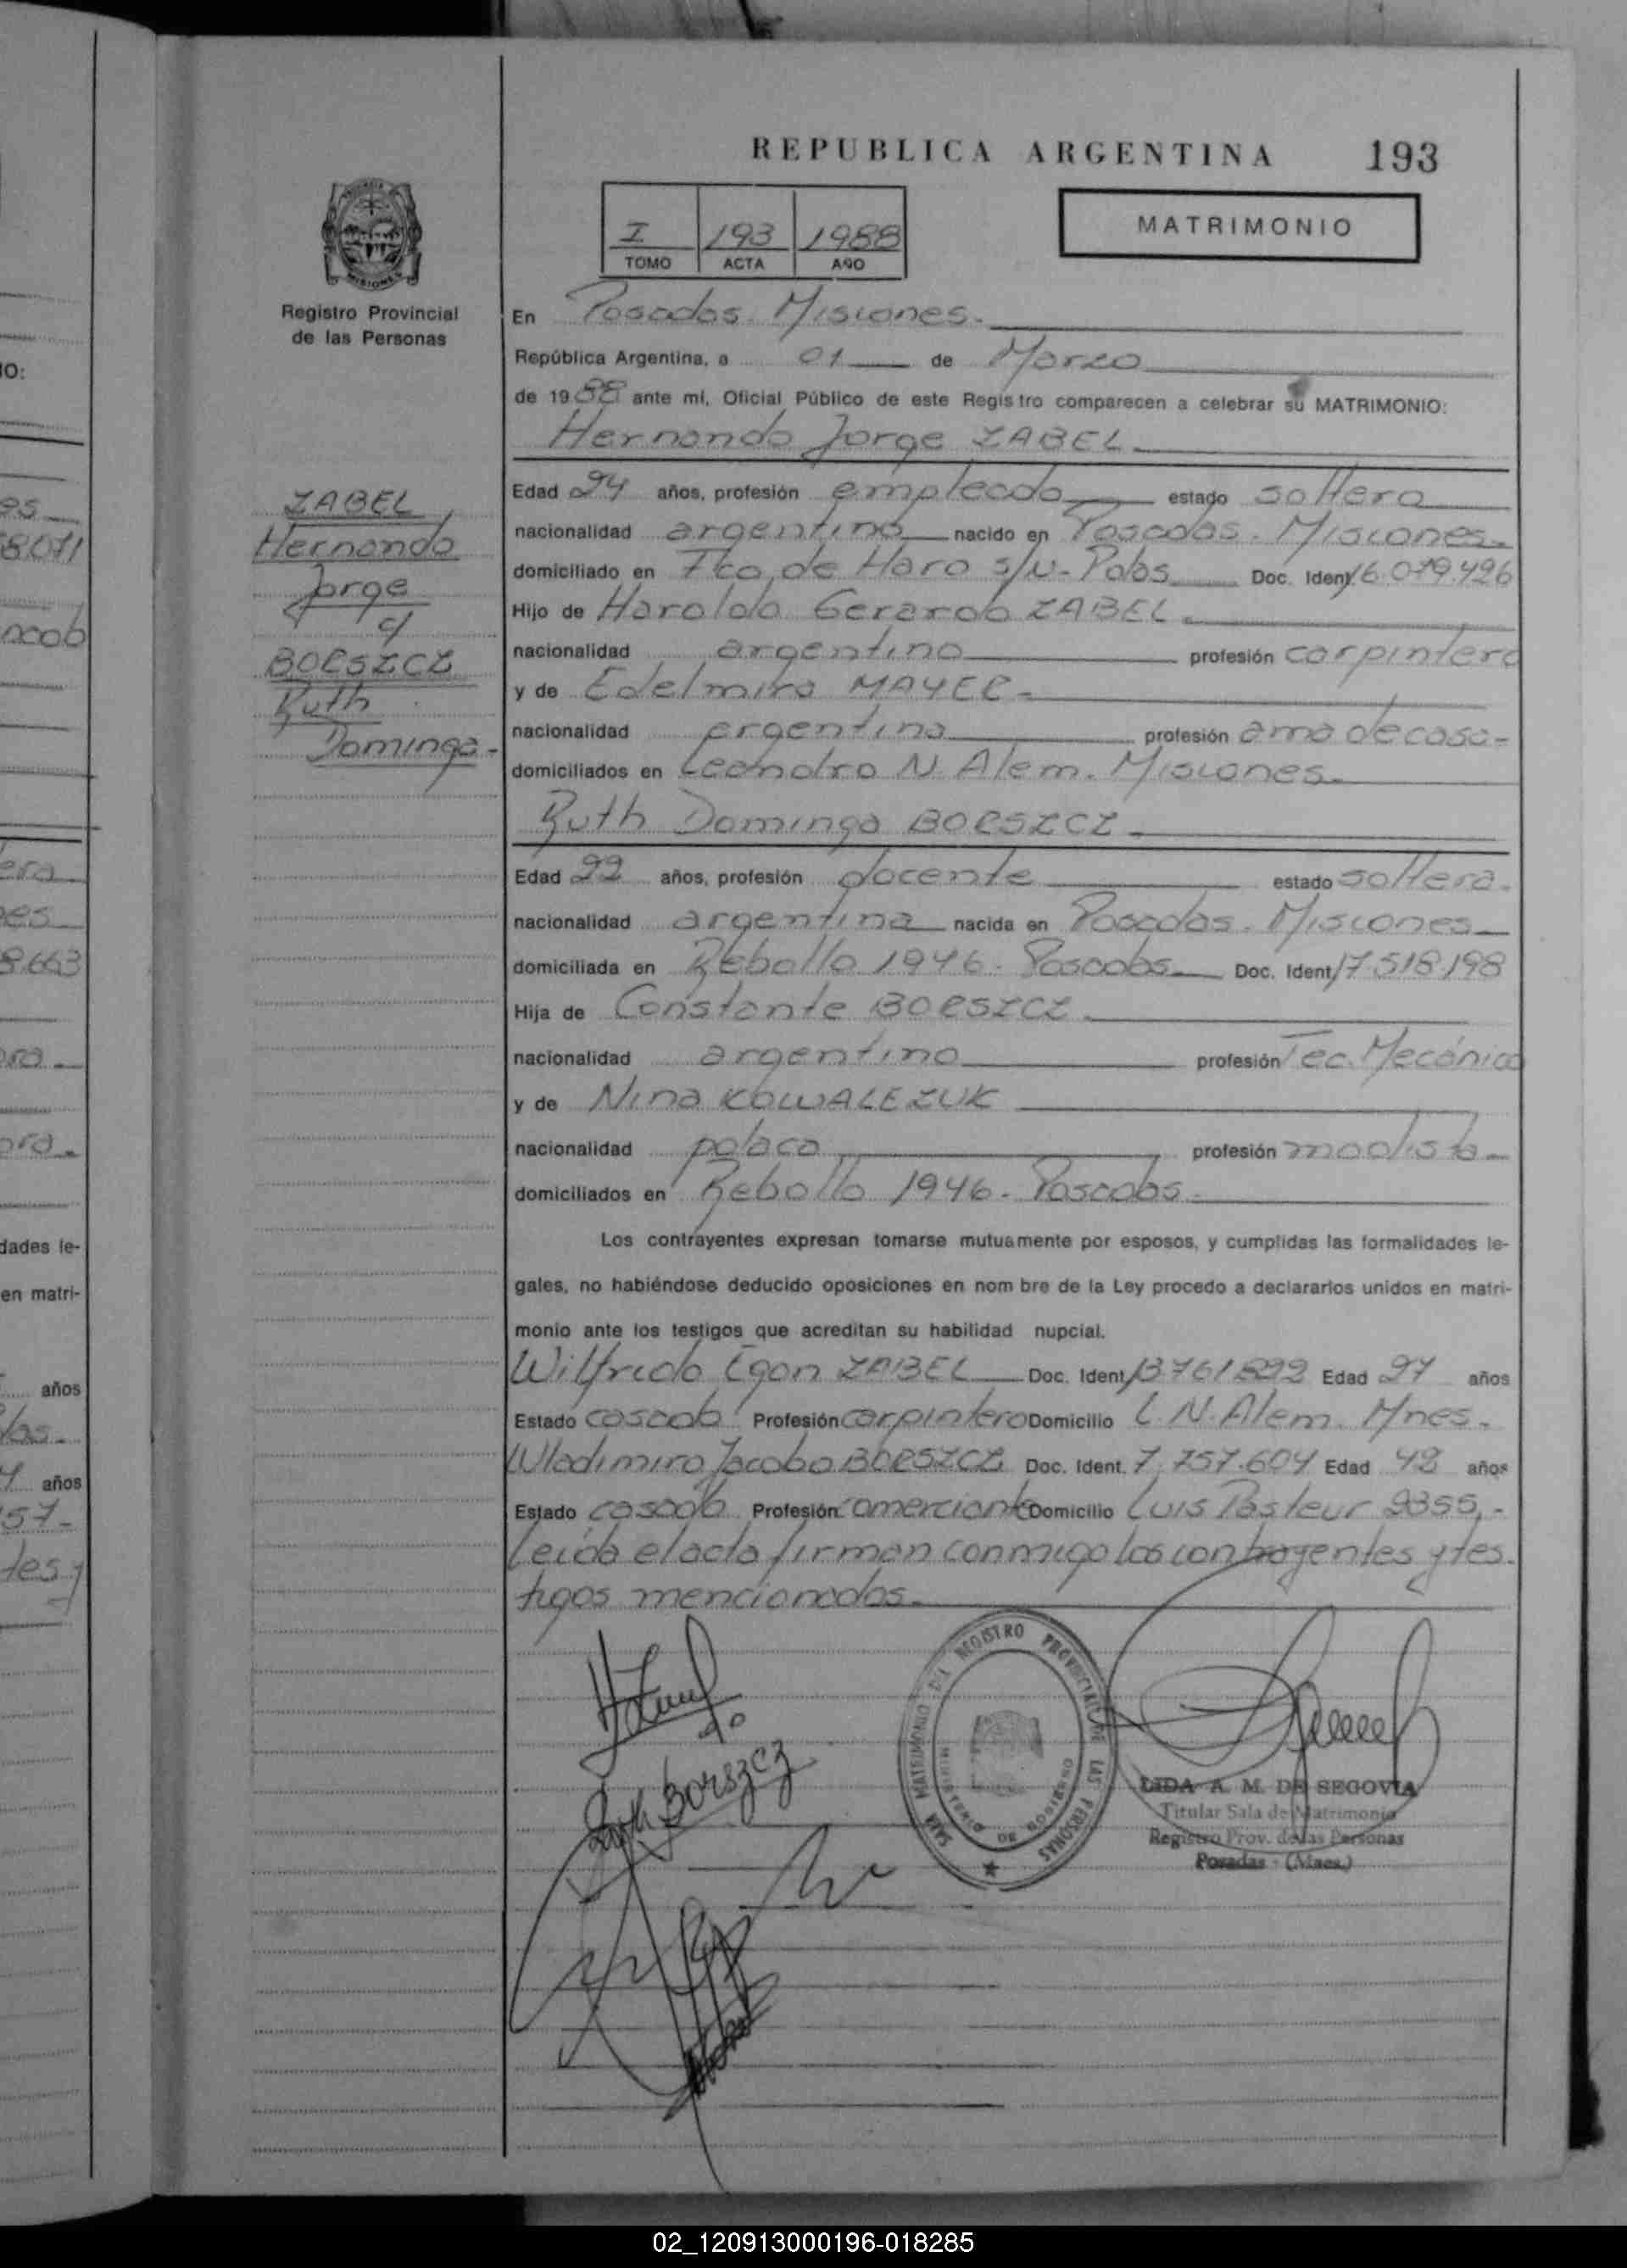 REPUBLICA ARGENTINA 193
I 193 1988
TOMO ACTA AÑO
MATRIMONIO
MISIONES
Registro Provincial
de las Personas
En Posadas. Misiones.
República Argentina, a 01 de Marzo
de 1988 ante mí, Oficial Público de este Registro comparecen a celebrar su MATRIMONIO:
Hernando Jorge ZABEL
ZABEL
Hernando
Jorge
c/
BORSZCZ
Ruth
Dominga.-
Edad 24 años, profesión empleado estado soltero
nacionalidad argentino nacido en Posadas. Misiones.
domiciliado en Fco. de Haro s/N- Pdas Doc. Ident. 16.079.426
Hijo de Haroldo Gerardo ZABEL
nacionalidad argentino profesión carpintero
y de Edelmira MAYER.-
nacionalidad argentina profesión ama de casa-
domiciliados en Leandro N. Alem. Misiones.
Ruth Dominga BORSZCZ.
Edad 22 años, profesión docente estado soltera.
nacionalidad argentina nacida en Posadas. Misiones
domiciliada en Rebollo 1946. Posadas Doc. Ident. 17.518.198
Hija de Constante BORSZCZ
nacionalidad argentino profesión Tec. Mecánico
y de Nina KOWALEZUK
nacionalidad polaca profesión modista
domiciliados en Rebollo 1946. Posadas.
Los contrayentes expresan tomarse mutuamente por esposos, y cumplidas las formalidades le-
gales, no habiéndose deducido oposiciones en nom bre de la Ley procedo a declararlos unidos en matri-
monio ante los testigos que acreditan su habilidad nupcial.
Wilfrido Egon ZABEL Doc. Ident. 13.761.822 Edad 27 años
Estado casado Profesión carpintero Domicilio L. N. Alem. Mnes.
Wladimiro Jacobo BORSZCZ Doc. Ident. 7.757.604 Edad 48 años
Estado casado Profesión comerciante Domicilio Luis Pasteur 2355.-
Leída el acta firman conmigo los contrayentes y tes.
tigos mencionados.
Ruth Borszcz
SALA MATRIMONIO DEL REGISTRO PROVINCIAL DE LAS PERSONAS
MINISTERIO DE GOBIERNO
LIDA A. M. DE SEGOVIA
Titular Sala de Matrimonio
Registro Prov. de las Personas
Posadas - (Mnes.)
02_120913000196-018285